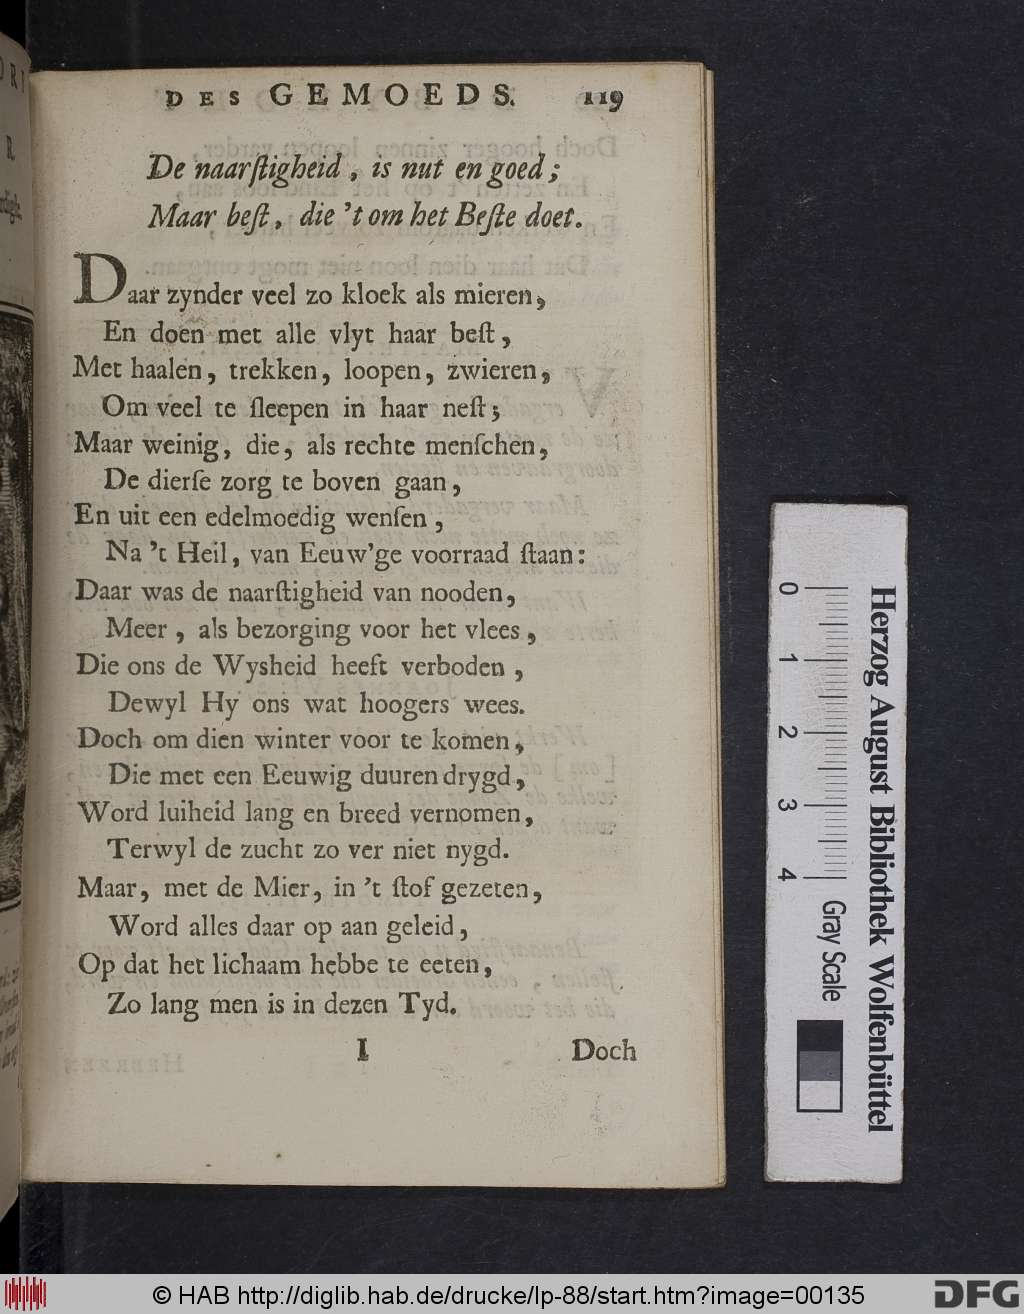 DES GEMOEDS. 119
De naarſtigheid, is nut en goed;
Maar beſt, die 't om het Beſte doet.
Daar zynder veel zo kloek als mieren,
En doen met alle vlyt haar beſt,
Met haalen, trekken, loopen, zwieren,
Om veel te ſleepen in haar neſt;
Maar weinig, die, als rechte menſchen,
De dierſe zorg te boven gaan,
En uit een edelmoedig wenſen,
Na 't Heil, van Eeuw'ge voorraad ſtaan:
Daar was de naarſtigheid van nooden,
Meer, als bezorging voor het vlees,
Die ons de Wysheid heeft verboden,
Dewyl Hy ons wat hoogers wees.
Doch om dien winter voor te komen,
Die met een Eeuwig duuren drygd,
Word luiheid lang en breed vernomen,
Terwyl de zucht zo ver niet nygd.
Maar, met de Mier, in 't ſtof gezeten,
Word alles daar op aan geleid,
Op dat het lichaam hebbe te eeten,
Zo lang men is in dezen Tyd.
I Doch
0 1 2 3 4
Gray Scale
Herzog August Bibliothek Wolfenbüttel
© HAB http://diglib.hab.de/drucke/lp-88/start.htm?image=00135
DFG